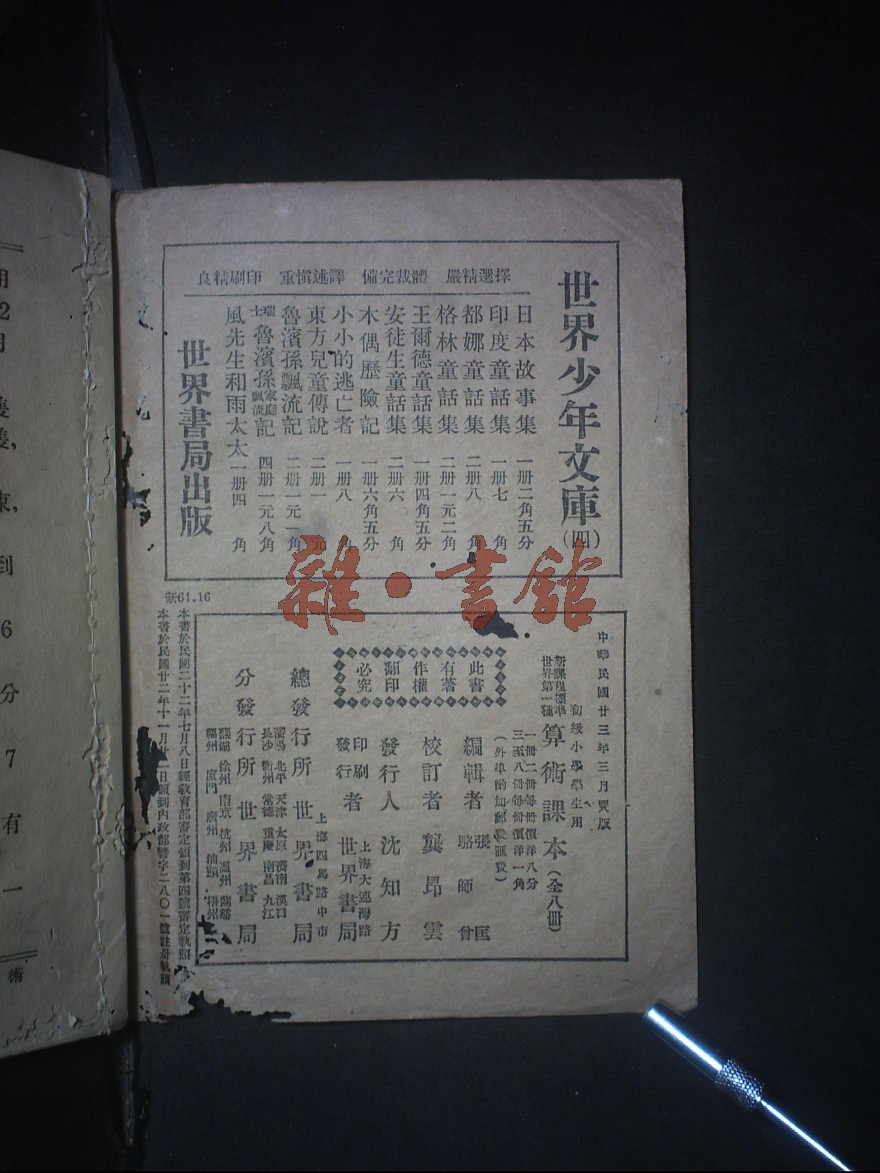 世界少年文庫(四)
選擇精嚴 體裁完備 譯述愼重 印刷精良
日本故事集 一册二角五分
印度童話集 一册七角
都娜童話集 二册八角
格林童話集 二册一元二角
王爾德童話集 一册四角五分
安徒生童話集 二册六角
木偶歷險記 一册六角五分
小小的逃亡者 一册八角
東方兒童傳說 二册一元
魯濱孫飄流記 二册一元一角
瑞士魯濱孫家庭飄流記 四册一元八角
風先生和雨太太 一册四角
世界書局出版
中華民國廿三年三月
初級小學學生用
新課程標準世界第一種 算術課本(全八册)
一册二册每册價洋八分
三至八册每册價洋一角
(外埠酌加郵費匯費)
編輯者 張匡 駱師曾
校訂者 龔昂雲
發行人 沈知方
印刷發行者 上海大連灣路 世界書局
此書有著作權翻印必究
總發行所 上海四馬路中市 世界書局
分發行所 世界書局
瀋陽 北平 天津 太原 濟南 漢口
長沙 衡州 常德 重慶 南昌 九江
蕪湖 徐州 南京 杭州 溫州 蘭谿
福州 廈門 廣州 汕頭 梧州
本書於民國二十二年七月八日經教育部審定領到第四號審定執照
本書於民國廿二年十一月廿一日領到內政部警字二八〇一號註册執照
64.16
雜·書館
2
到
6
分
7
有
一
術